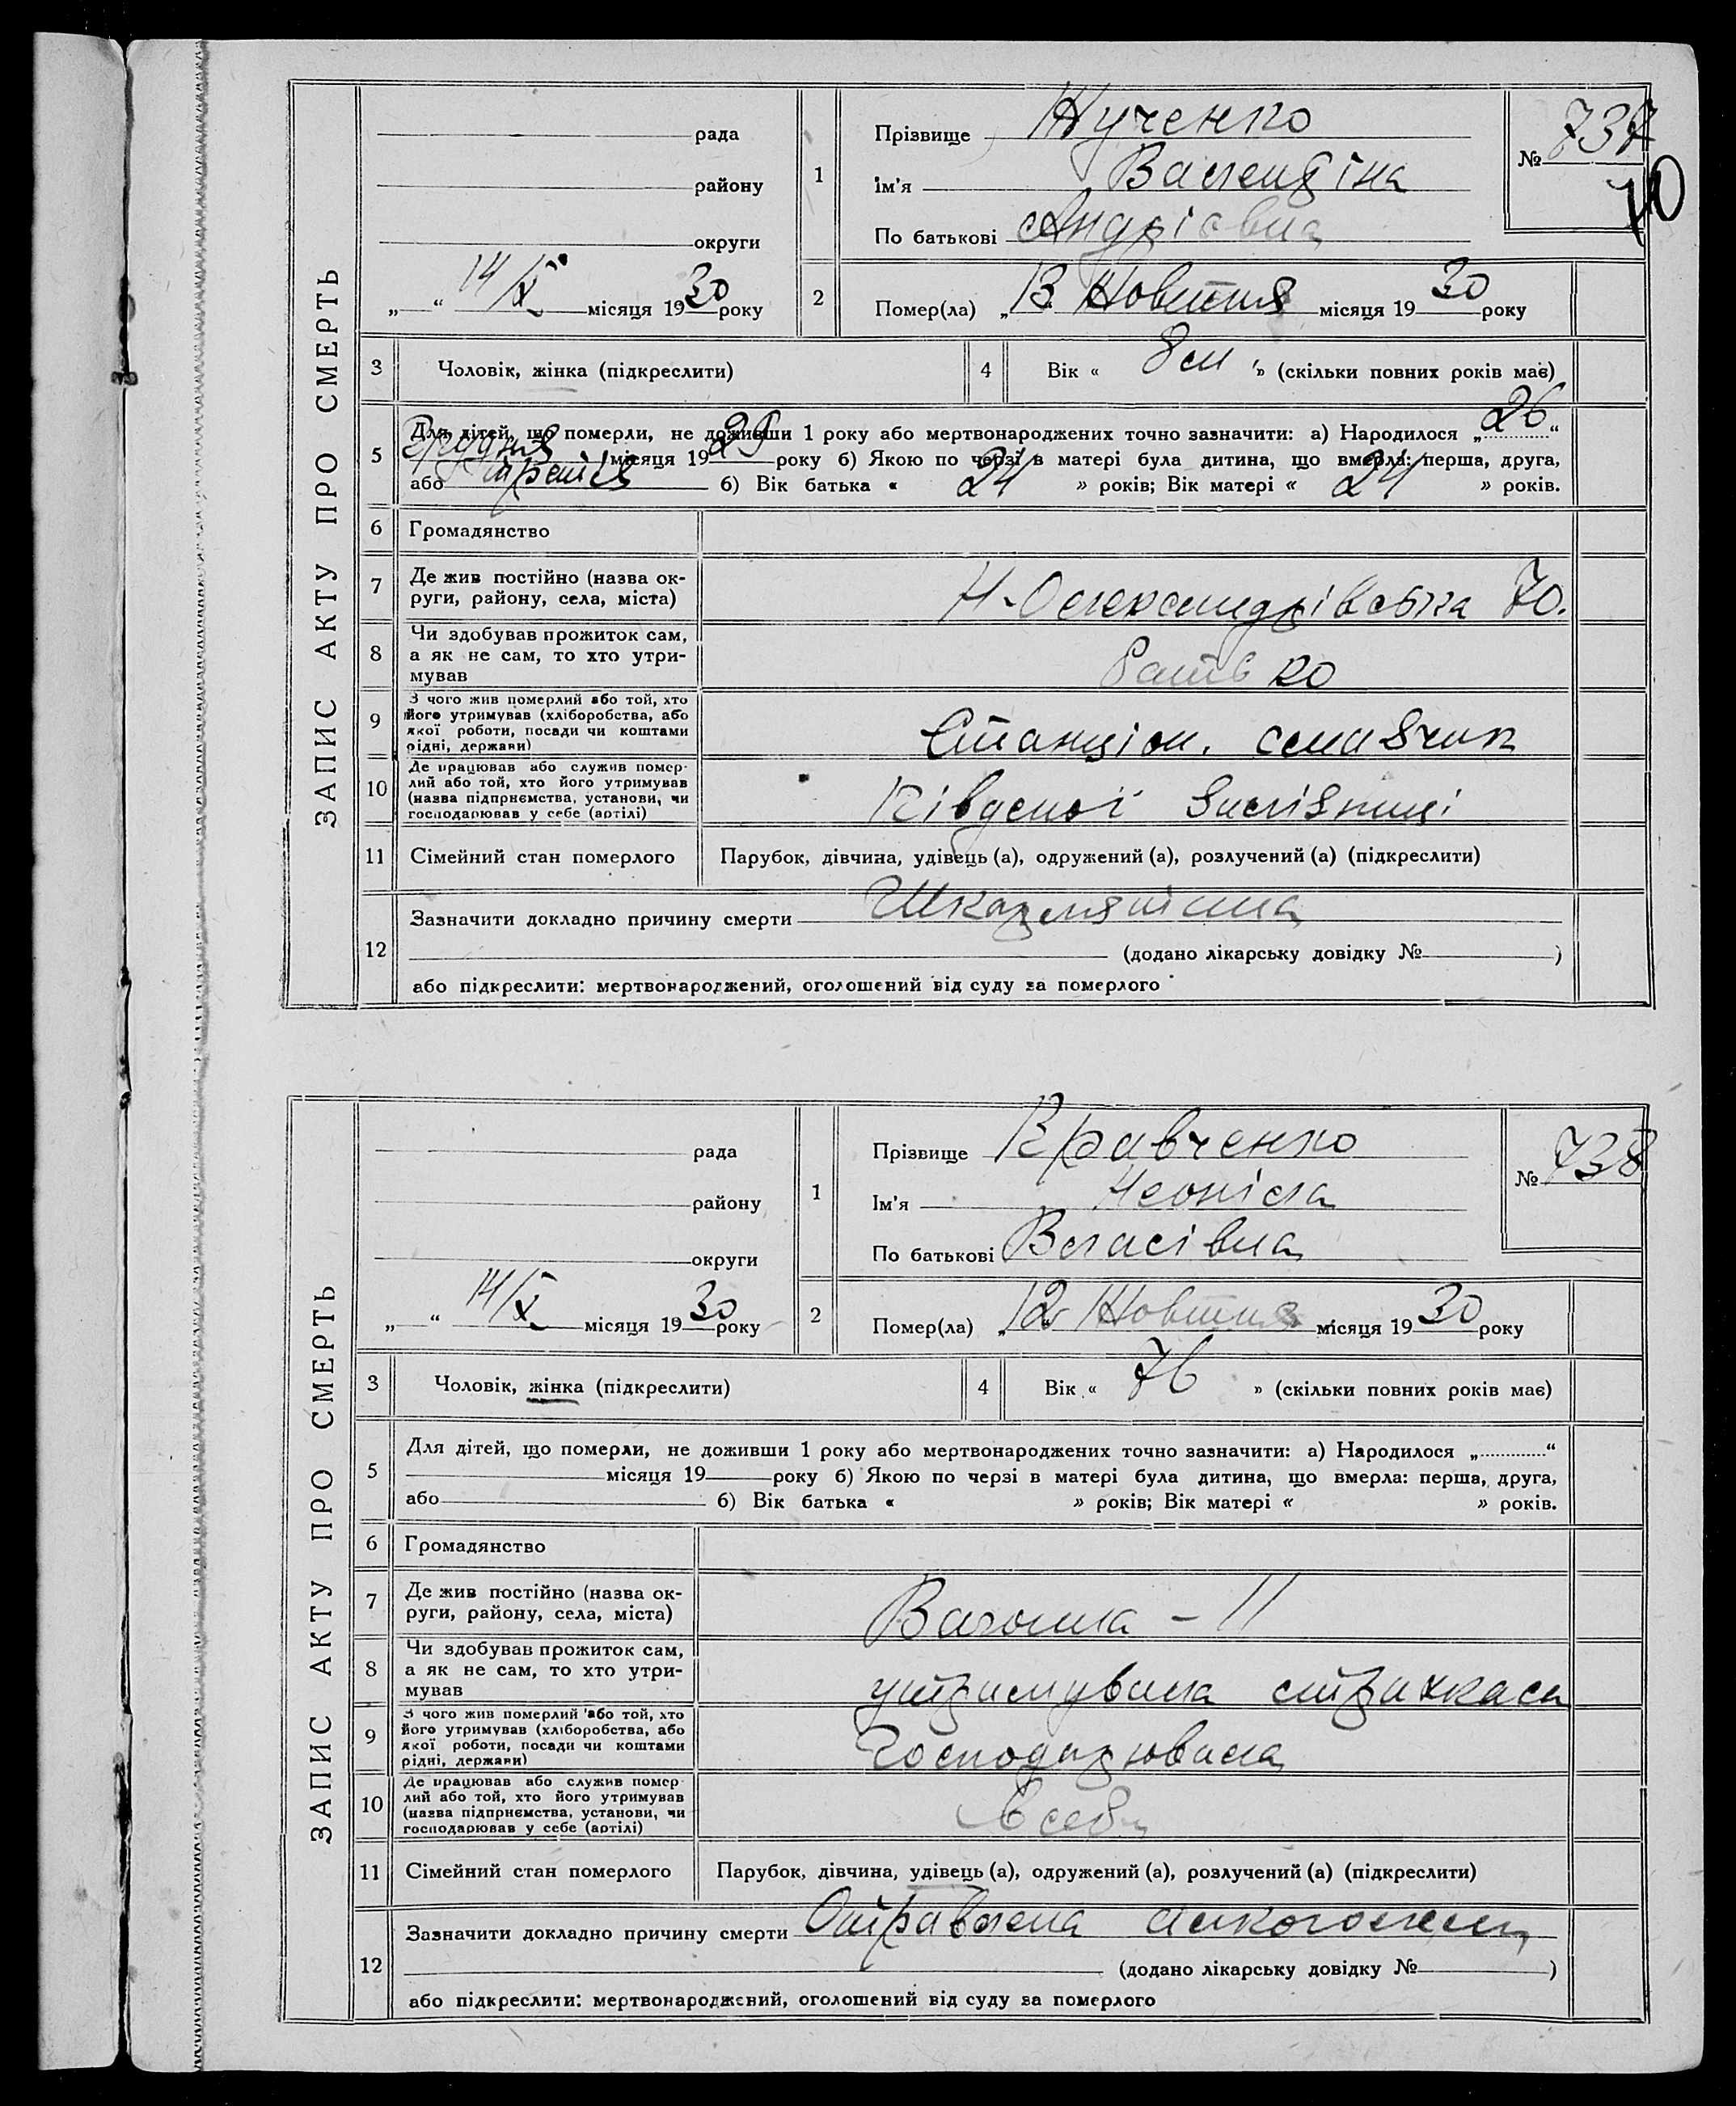 ЗАПИС АКТУ ПРО СМЕРТЬ
рада
району
округи
„ “ 14/X місяця 1930 року
1
Прізвище Жученко
Ім'я Валендіна
По батькові Андріівна
№ 737
70
2
Помер(ла) „13 Жовтня місяця 1930 року
3 Чоловік, жінка (підкреслити)
4 Вік « 8 м » (скільки повних років має)
5 Для дітей, що померли, не доживши 1 року або мертвонароджених точно зазначити: а) Народилося „26“
Грудня місяця 1929 року б) Якою по черзі в матері була дитина, що вмерла: перша, друга,
або третів б) Вік батька « 24 » років; Вік матері « 24 » років.
6 Громадянство
7 Де жив постійно (назва ок-
руги, району, села, міста)
Н-Олександрівська 70.
8 Чи здобував прожиток сам,
а як не сам, то хто утри-
мував
батько
9 З чого жив померлий або той, хто
його утримував (хліборобства, або
якої роботи, посади чи коштами
рідні, держави)
Станціон. смазчик
10 Де працював або служив помер-
лий або той, хто його утримував
(назва підприємства, установи, чи
господарював у себе (артілі)
Південої залізниці
11 Сімейний стан померлого
Парубок, дівчина, удівець (а), одружений (а), розлучений (а) (підкреслити)
12 Зазначити докладно причину смерти
(додано лікарську довідку № )
або підкреслити: мертвонароджений, оголошений від суду за померлого
ЗАПИС АКТУ ПРО СМЕРТЬ
рада
району
округи
„ “ 14/X місяця 1930 року
1
Прізвище Кравченко
Ім'я Неоніла
По батькові Власівна
№ 738
2
Помер(ла) „12 Жовтня місяця 1930 року
3 Чоловік, жінка (підкреслити)
4 Вік « 76 » (скільки повних років має)
5 Для дітей, що померли, не доживши 1 року або мертвонароджених точно зазначити: а) Народилося „ “
місяця 19 року б) Якою по черзі в матері була дитина, що вмерла: перша, друга,
або б) Вік батька « » років; Вік матері « » років.
6 Громадянство
7 Де жив постійно (назва ок-
руги, району, села, міста)
– 11
8 Чи здобував прожиток сам,
а як не сам, то хто утри-
мував
утримувала страхкаса
9 З чого жив померлий або той, хто
його утримував (хліборобства, або
якої роботи, посади чи коштами
рідні, держави)
Господарювала
10 Де працював або служив помер-
лий або той, хто його утримував
(назва підприємства, установи, чи
господарював у себе (артілі)
В себе
11 Сімейний стан померлого
Парубок, дівчина, удівець (а), одружений (а), розлучений (а) (підкреслити)
12 Зазначити докладно причину смерти Отравлена алкоголем
(додано лікарську довідку № )
або підкреслити: мертвонароджений, оголошений від суду за померлого